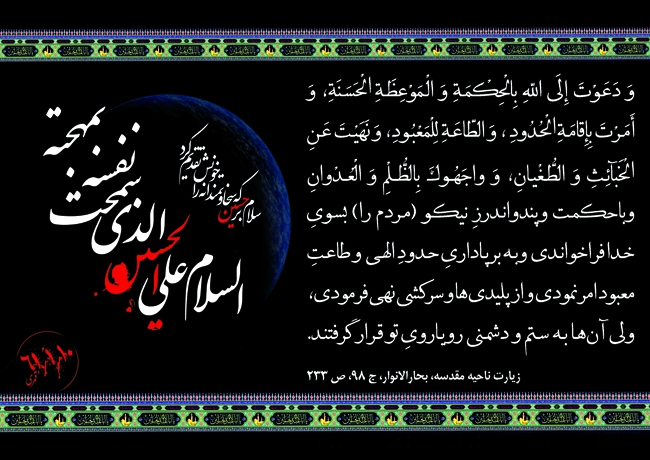 وَ دَعَوْتَ إِلَی اللّهِ بِالْحِکْمَةِ وَ الْمَوْعِظَةِ الْحَسَنَةِ، وَ
أَمَرْتَ بِإِقامَةِ الْحُدُودِ، وَ الطّاعَةِ لِلْمَعْبُودِ، وَ نَهَیْتَ عَنِ
الْخَبآئِثِ وَ الطُّغْیانِ، وَ واجَهُوكَ بِالظُّلْمِ وَ الْعُدْوانِ
و با حکمت و پند و اندرزِ نیکو (مردم را) بسویِ
خدا فراخواندی و به برپاداریِ حدودِ الهی و طاعتِ
معبود امر نمودی و از پلیدی‌ها و سرکشی نهی فرمودی،
ولی آن‌ها به ستم و دشمنی رویارویِ تو قرار گرفتند.
زیارت ناحیه مقدسه، بحارالانوار، ج ۹۸، ص ۲۳۳
السلام علی الحسین
الذی سمحت
نفسه
بمهجته
سلام بر حسین که سخاوتمندانه
خویش را تقدیم کرد